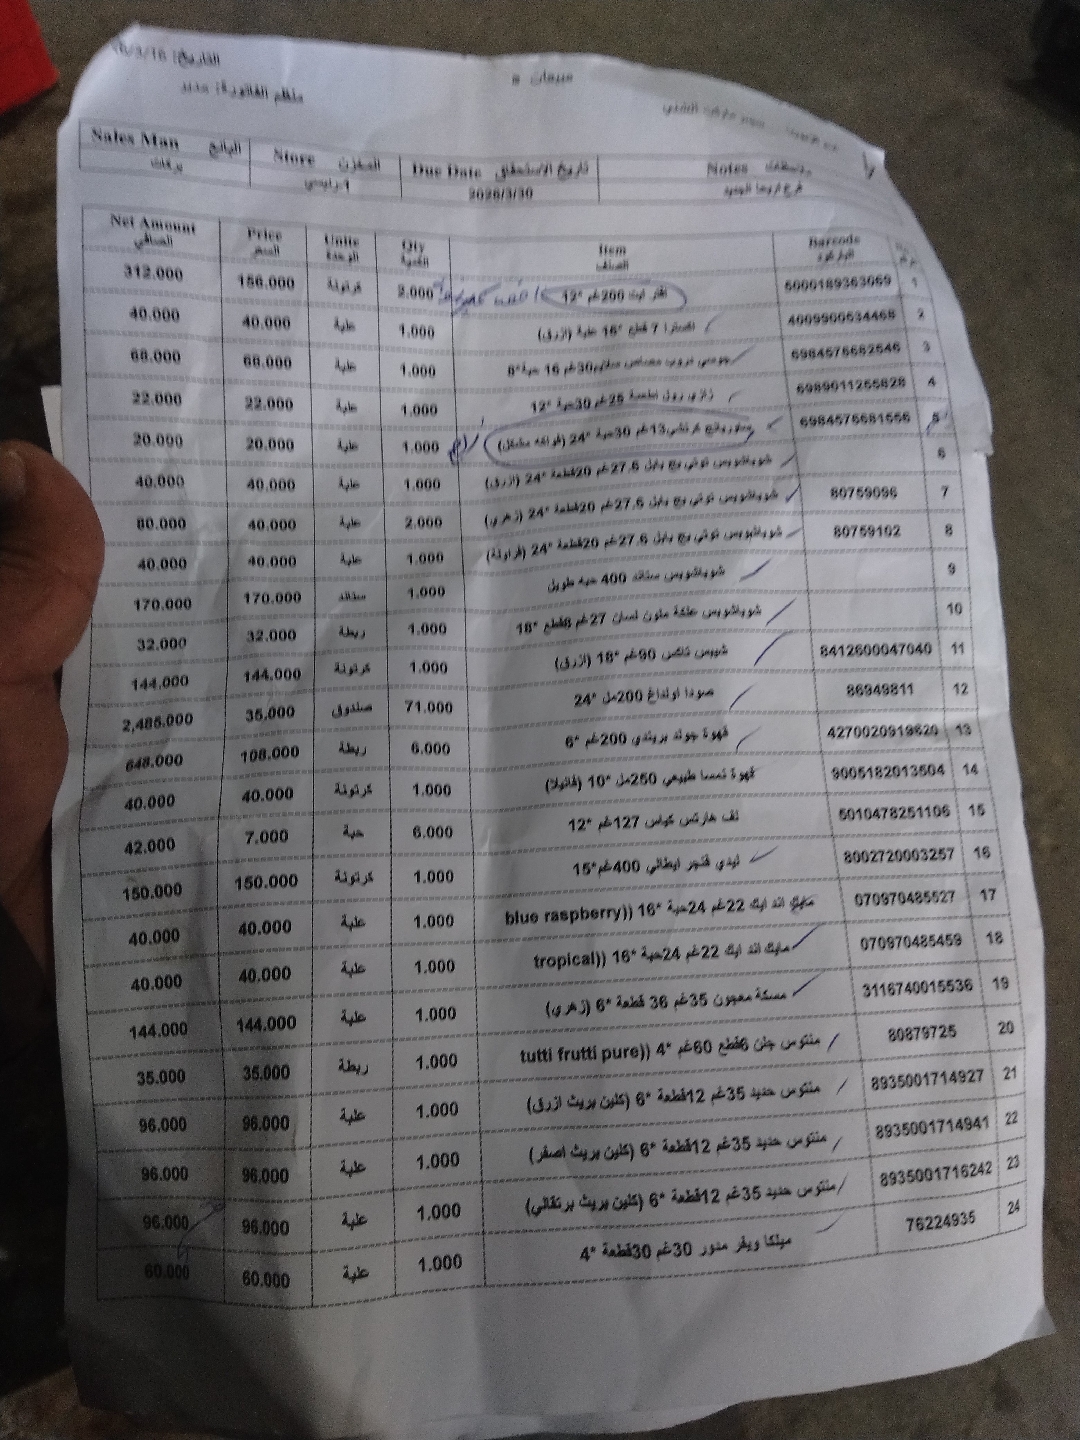 التاريخ: 6/3/16
مبيعات
منظم الفاتورة: مدير
Sales Man البائع
Store المخزن
Due Date تاريخ الاستحقاق
Notes ملاحظات
بركات
2026/3/30
فرع اريحا الجديد
Net Amount الصافي
Price السعر
Units الوحدة
Qty الكمية
Item الصنف
Barcode الباركود
312.000 156.000 كرتونة 2.000 200غم *12 5000189363069 1
40.000 40.000 علبة 1.000 اكسترا 7 قطع *16 علبة (ازرق) 4009900534468 2
68.000 68.000 علبة 1.000 جوسي دروب 30غم 16 حبة*8 6984576682546 3
22.000 22.000 علبة 1.000 رول 25غم 30حبة *12 6989011265828 4
20.000 20.000 علبة 1.000 13غم 30حبة *24 (فواكه مشكل) 6984576681556 5
40.000 40.000 علبة 1.000 شوباشوبس توتي بج بابل 27.6غم 20قطعة *24 (ازرق) 6
80.000 40.000 علبة 2.000 شوباشوبس توتي بج بابل 27.6غم 20قطعة *24 (زهري) 80759096 7
40.000 40.000 علبة 1.000 شوباشوبس توتي بج بابل 27.6غم 20قطعة *24 (فراولة) 80759102 8
170.000 170.000 ستاند 1.000 شوباشوبس ستاند 400 حبه طويل 9
32.000 32.000 ربطة 1.000 شوباشوبس علكة ملون لسان 27غم 6قطع *18 10
144.000 144.000 كرتونة 1.000 شيبس تاكس 90غم *18 (ازرق) 8412600047040 11
2,485.000 35.000 صندوق 71.000 صودا اولداغ 200مل *24 86949811 12
648.000 108.000 ربطة 6.000 قهوة جولد بريندي 200غم *6 4270020919620 13
40.000 40.000 كرتونة 1.000 قهوة نمسا طبيعي 250مل *10 (فانيلا) 9005182013504 14
42.000 7.000 حبة 6.000 لف هارتس كياس 127غم *12 5010478251106 15
150.000 150.000 كرتونة 1.000 ليدي فنجر ايطالي 400غم*15 8002720003257 16
40.000 40.000 علبة 1.000 مايك اند ايك 22غم 24حبة *16 ((blue raspberry 070970485527 17
40.000 40.000 علبة 1.000 مايك اند ايك 22غم 24حبة *16 ((tropical 070970485459 18
144.000 144.000 علبة 1.000 مسكة معجون 35غم 36 قطعة *6 (زهري) 3116740015536 19
35.000 35.000 ربطة 1.000 منتوس جلن 6قطع 60غم *4 ((tutti frutti pure 80879725 20
96.000 96.000 علبة 1.000 منتوس حديد 35غم 12قطعة *6 (كلين بريث ازرق) 8935001714927 21
96.000 96.000 علبة 1.000 منتوس حديد 35غم 12قطعة *6 (كلين بريث اصفر) 8935001714941 22
96.000 96.000 علبة 1.000 منتوس حديد 35غم 12قطعة *6 (كلين بريث برتقالي) 8935001716242 23
60.000 60.000 علبة 1.000 ميلكا ويفر مدور 30غم 30قطعة *4 76224935 24